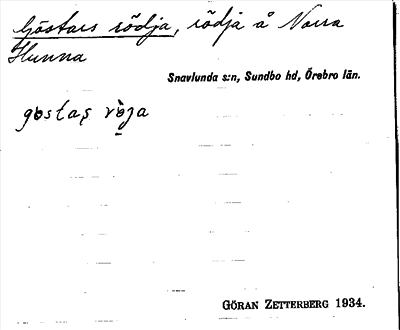 Göstars rödja, rödja å Norra
Hunna
Snavlunda s:n, Sundbo hd, Örebro län.
gøstaş rø̀ja
GÖRAN ZETTERBERG 1934.